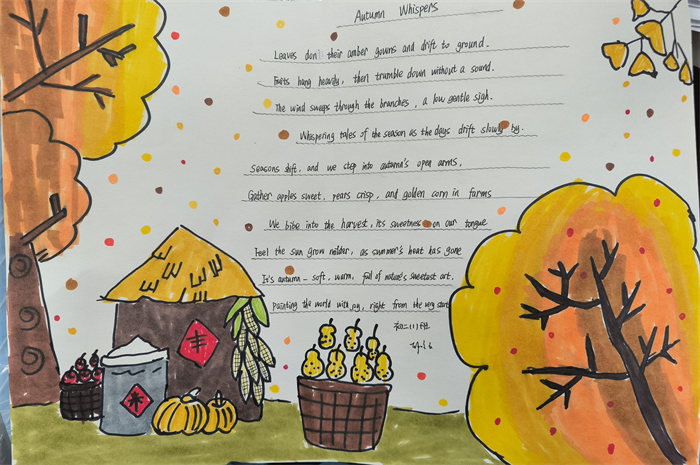 Autumn Whispers
Leaves don their amber gowns and drift to ground.
Fruits hang heavily, then tramble down without a sound.
The wind sweeps through the branches, a low gentle sigh.
Whispering tales of the season as the days drift slowly by.
Seasons shift, and we step into autumn's open arms,
Gather apples sweet, pears crisp, and golden corn in farms
We bibe into the harvest, its sweetness on our tongue
Feel the sun grow milder, as summer's heat has gone
It's autumn - soft, warm, full of nature's sweetest art,
Painting the world with joy, right from the very start
初二11班
丰
米